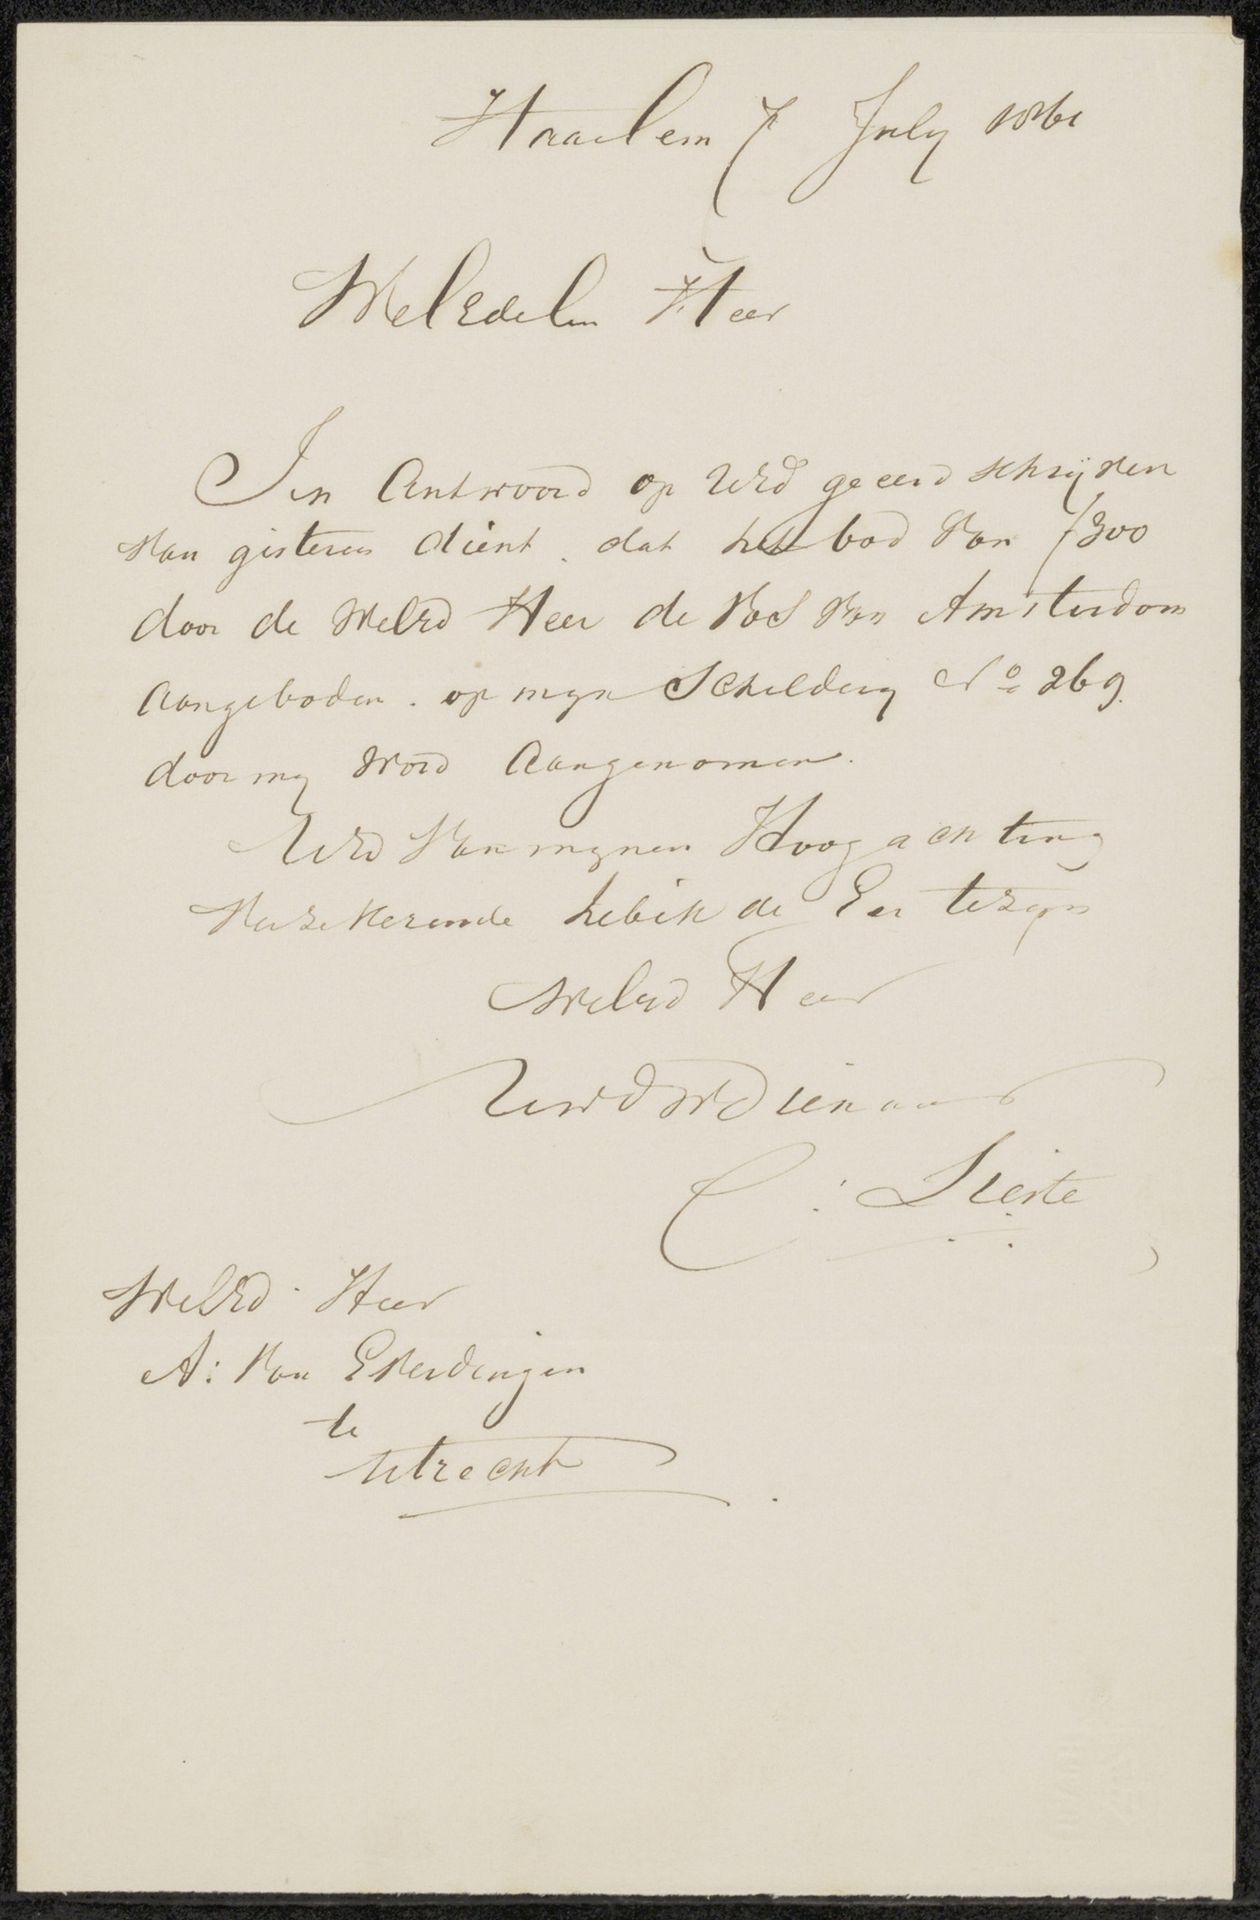 Haarlem 7 July 1861
WelEdelen Heer
In Antwoord op UEd geeerd schrijven
van gisteren dient. dat het bod van f300
door de WelEd Heer de Vos van Amsterdam
Aangeboden. op myn Schildery No 269.
door my word Aangenomen.
UEd van mynen Hoogachting
Verzekerende heb ik de Eer te zyn
WelEd Heer
UwEdWDienaar
C: Lieste
WelEd. Heer
A: van Everdingen
te
Utrecht